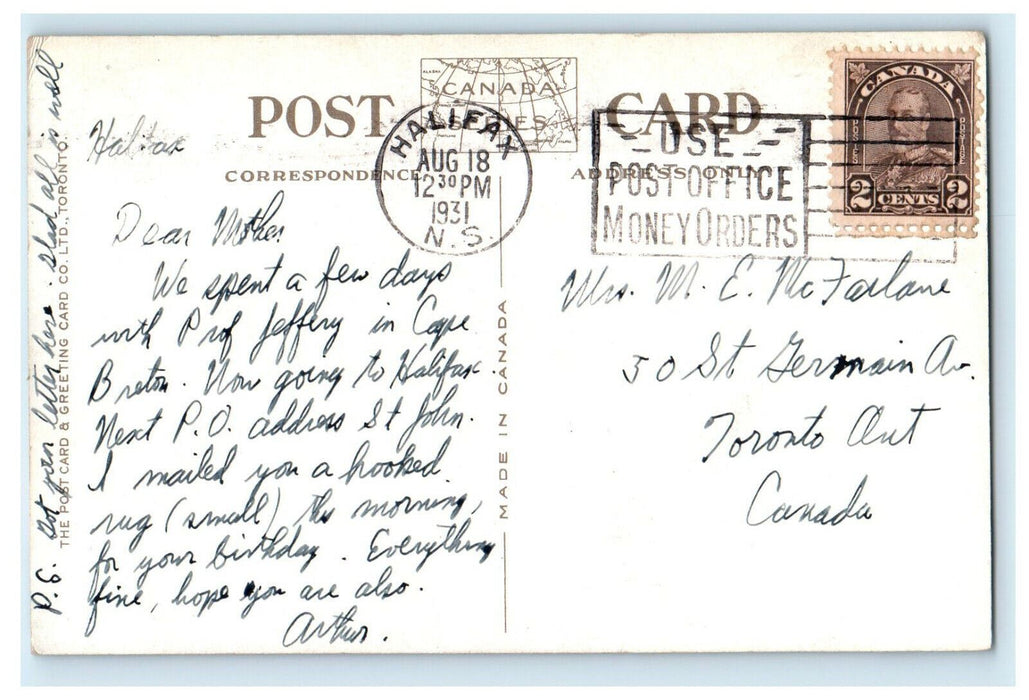 CANADA
POST CARD
CORRESPONDENCE
ADDRESS ONLY
HALIFAX
AUG 18
12 30 PM
1931
N.S.
USE
POST OFFICE
MONEY ORDERS
CANADA
POSTES POSTAGE
2 CENTS 2
Halifax
Dear Mother
We spent a few days
with Prof Jeffery in Cape
Breton. Now going to Halifax.
Next P.O. address St John.
I mailed you a hooked
rug (small) this morning,
for your birthday. Everything
fine, hope you are also.
Arthur.
P.S. Got your letter here. Glad all is well
THE POST CARD & GREETING CARD CO. LTD., TORONTO.
MADE IN CANADA
Mrs. M. E. McFarlane
50 St Germain Av.
Toronto Ont
Canada